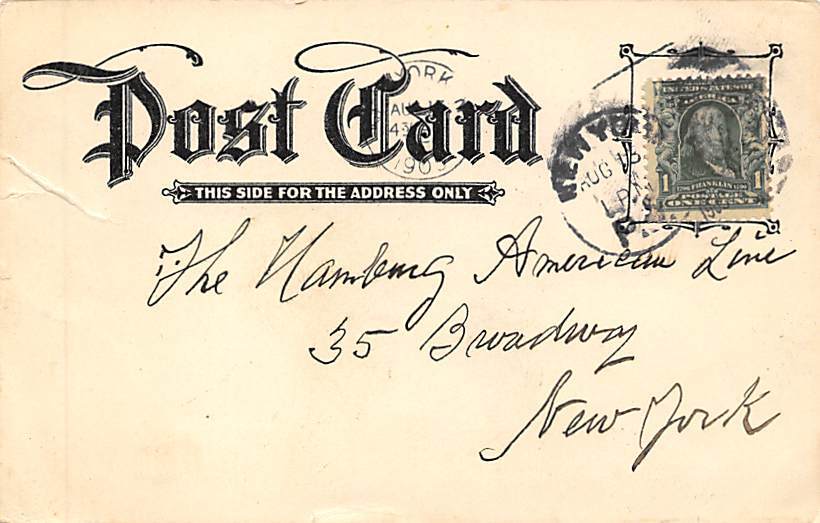 Post Card
THIS SIDE FOR THE ADDRESS ONLY
YORK
AUG
1903
NEW Y
AUG 18
1 PM
UNITED STATES OF
AMERICA
1 FRANKLIN 1
ONE CENT
The Hamburg American Line
35 Broadway
New York